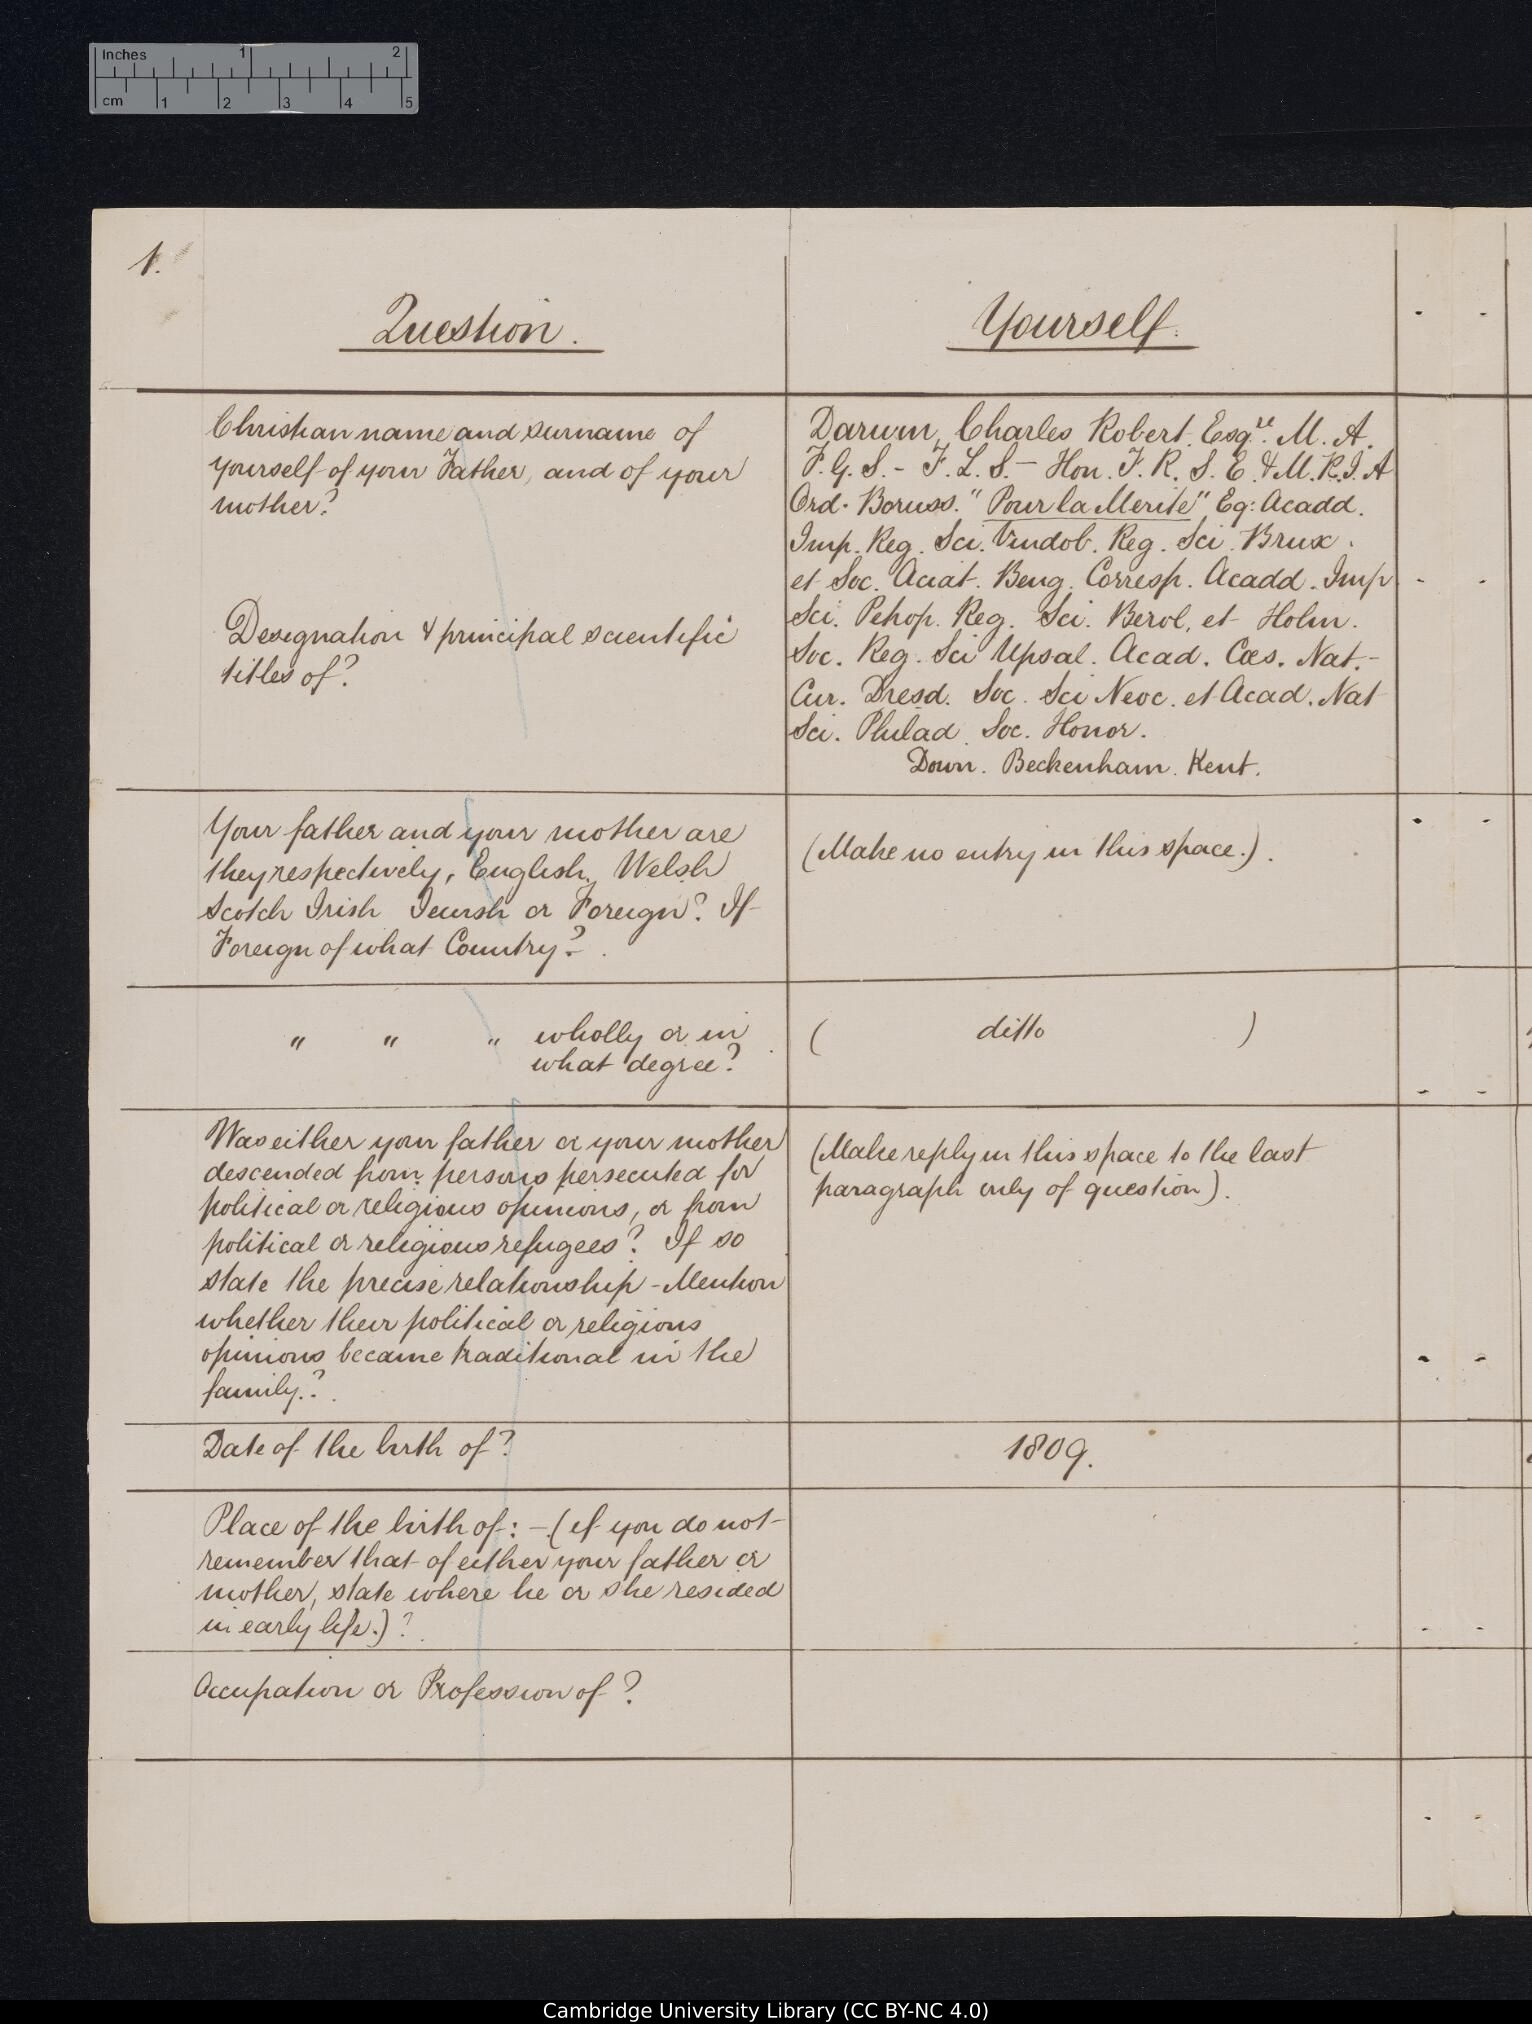 Inches 1 2
cm 1 2 3 4 5
1.
Question.
Yourself.
Christian name and surname of
yourself of your Father, and of your
mother?
Designation & principal scientific
titles of?
Darwin, Charles Robert. Esqre. M. A.
F. G. S. - F. L. S. - Hon. F. R. S. E. & M. R. I. A
Ord. Boruss. "Pour la Merite" Eq: Acadd.
Imp. Reg. Sci. Vindob. Reg. Sci. Brux.
et Soc. Aciat. Beng. Corresp. Acadd. Imp
Sci. Pehop. Reg. Sci. Berol, et Holm.
Soc. Reg. Sci Upsal. Acad. Cæs. Nat. -
Cur. Dresd. Soc. Sci Neoc. et Acad. Nat
Sci. Philad. Soc. Honor.
Down. Beckenham. Kent.
Your father and your mother are
they respectively, English, Welsh
Scotch Irish Jewish or Foreign? If
Foreign of what Country?
(Make no entry in this space.).
" " " wholly or in
what degree?
( ditto )
Was either your father or your mother
descended from persons persecuted for
political or religious opinions, or from
political or religious refugees? If so
state the precise relationship - Mention
whether their political or religious
opinions became traditional in the
family?
(Make reply in this space to the last
paragraph only of question).
Date of the birth of?
1809.
Place of the birth of: - (if you do not
remember that of either your father or
mother, state where he or she resided
in early life.)?
Occupation or Profession of?
Cambridge University Library (CC BY-NC 4.0)